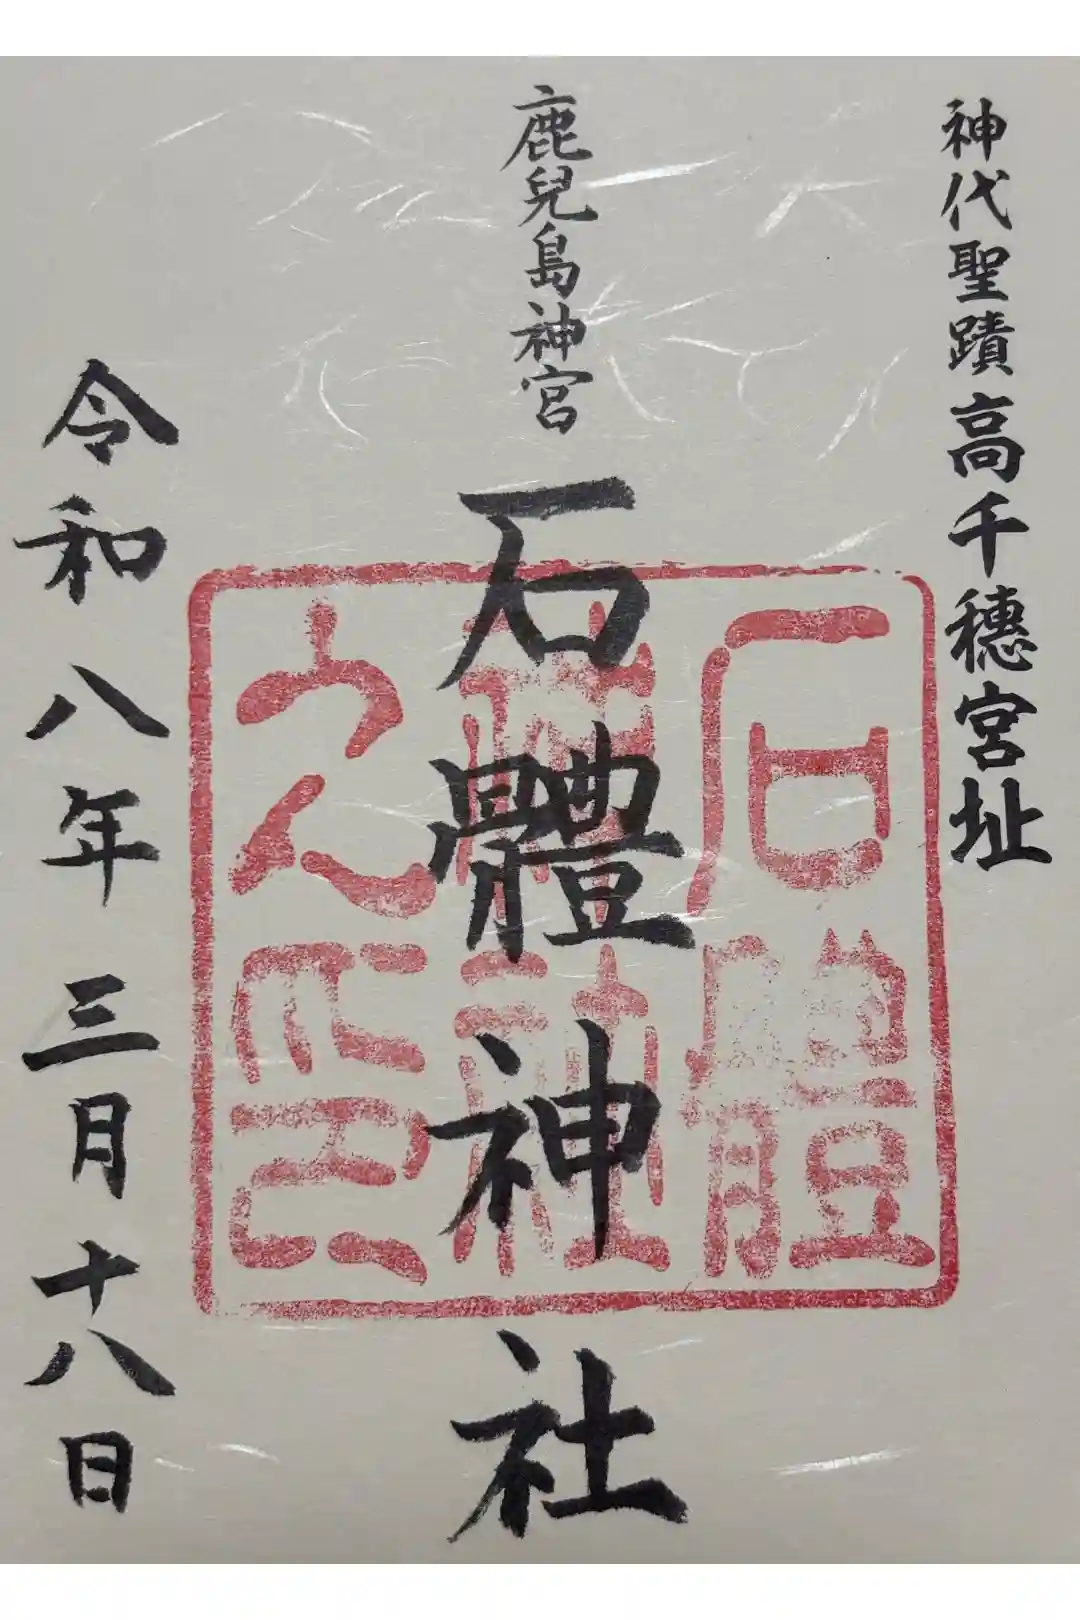 神代聖蹟高千穗宮址
鹿兒島神宮
石體神社
石體神社之印
令和八年三月十八日